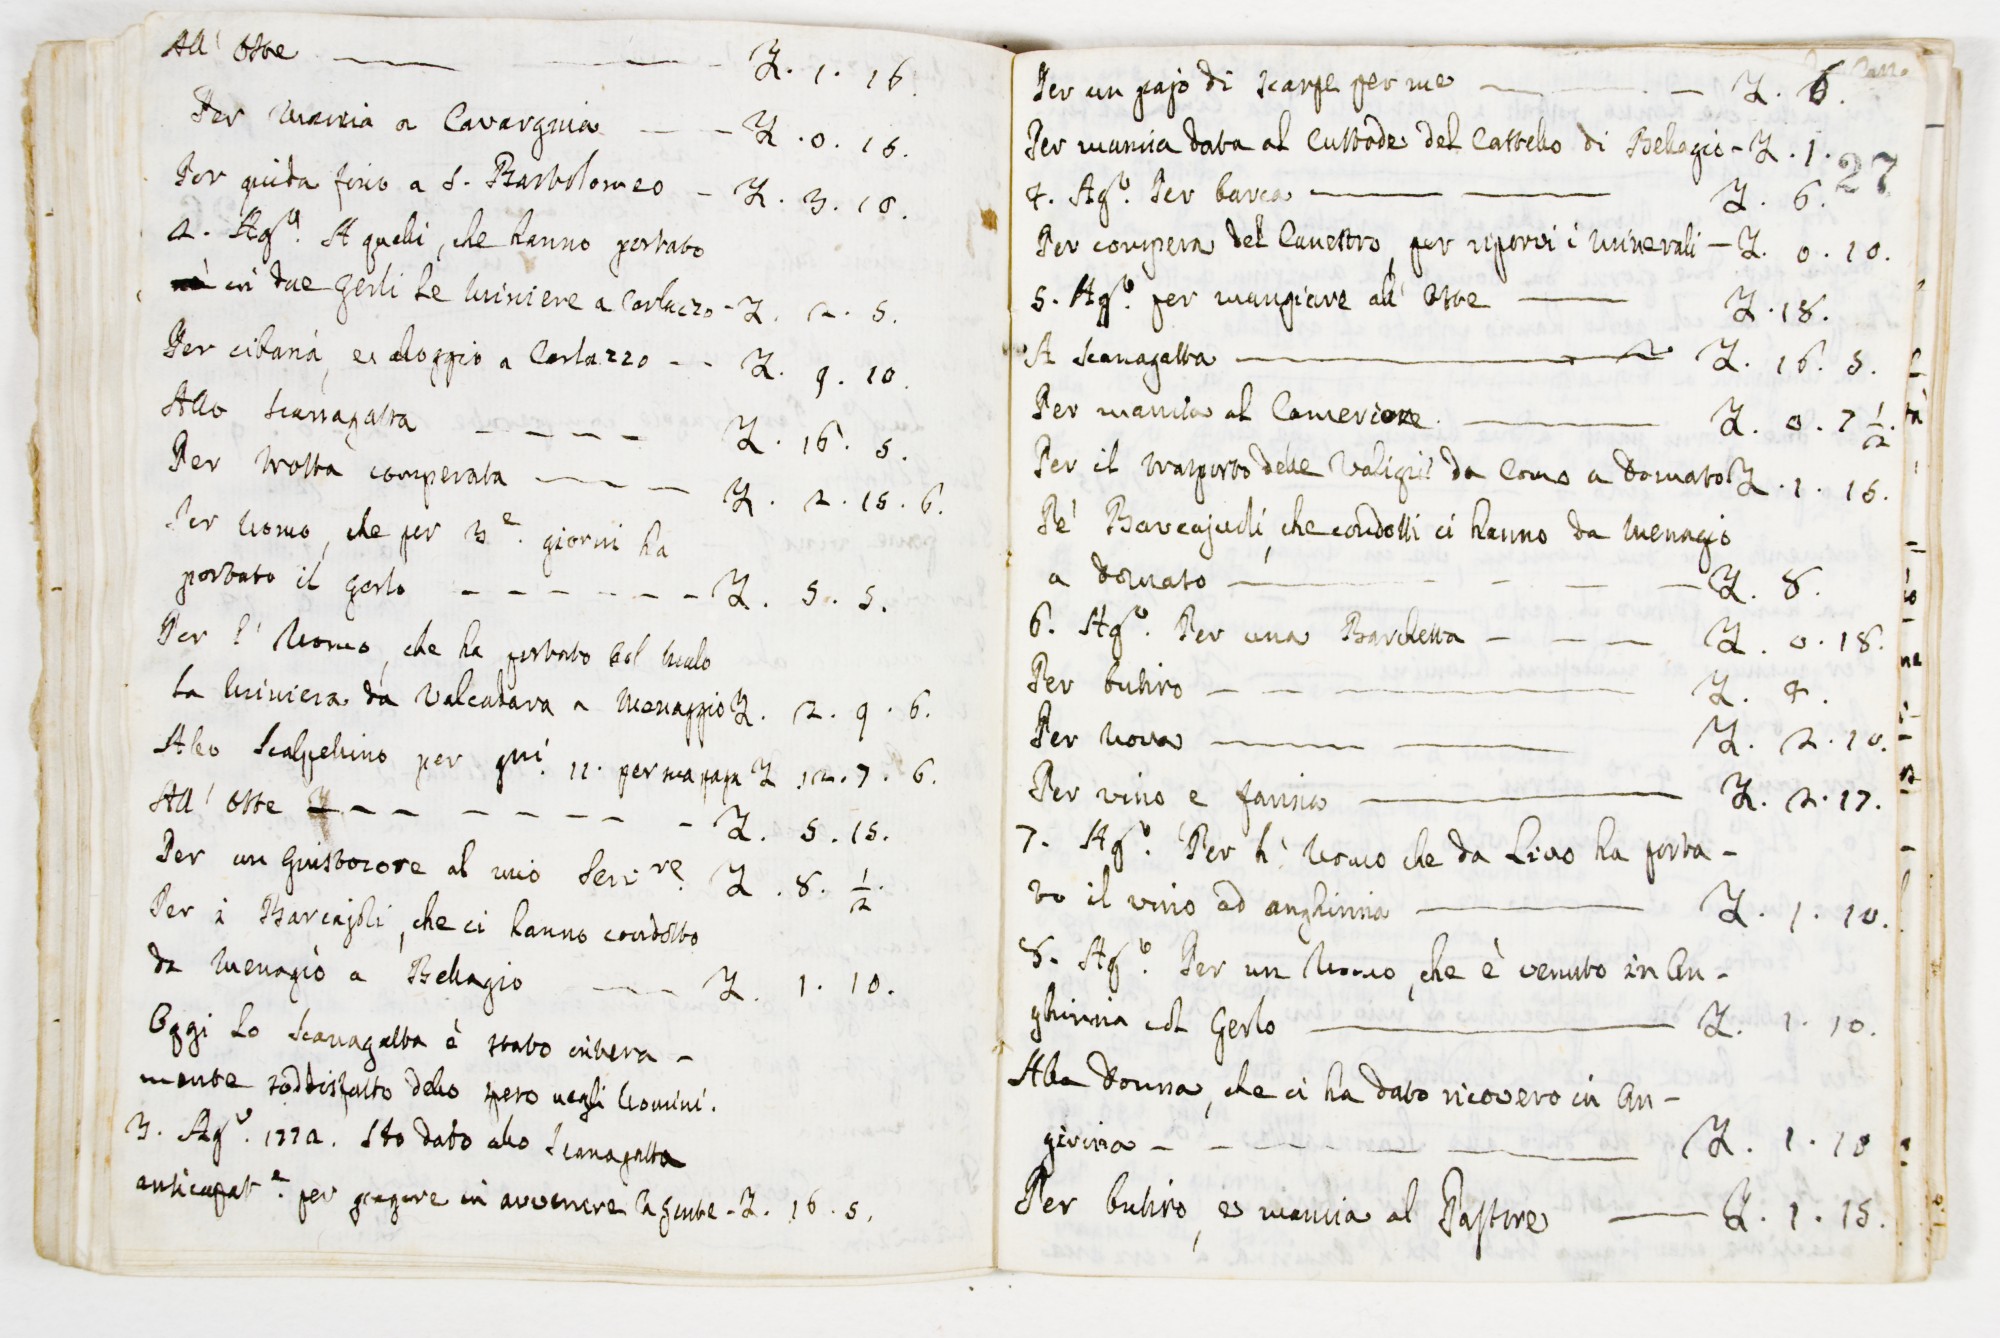 All' Oste — — Z. 1. 16.
Per mancia a Cavargnia — — Z. 0. 16.
Per guida fino a S. Bartolomeo — Z. 3. 10.
2. Agº. A quelli, che hanno portato
in due gerli le miniere a Corlazzo - Z. 2. 5.
Per cibaria, ed alloggio a Corlazzo - - Z. 9. 10.
Allo Scanagatta - - - - Z. 16. 5.
Per trotta comperata — — Z. 2. 15. 6.
Per Uomo, che per 3e. giorni ha
portato il gerlo - - - - - - Z. 5. 5.
Per l' Uomo, che ha portato col mulo
la miniera da Valcadara a Menaggio Z. 2. 9. 6.
Allo Scalpellino per gni. 11. per sua paga Z. 12. 7. 6.
All' Oste - - - - - - - Z. 5. 15.
Per un Giustocore al mio Servre. Z. 8. ½.
Per i Barcajoli, che ci hanno condotto
da Menagio a Bellagio — Z. 1. 10.
Oggi lo Scanagatta è stato intera-
mente soddisfatto dello speso negli Uomini.
3. Agº. 1772. Ho dato allo Scanagatta
anticipate. per pagare in avvenire la gente - Z. 16. 5.
Per un pajo di scarpe per me — — Z. 6.
Per mancia data al Custode del Castello di Bellagio - Z. 1.
27
4. Agº. Per barca — — Z. 6.
Per compera del Canestro, per riporvi i minerali - Z. 0. 10.
5. Agº. per mangiare all' Oste — Z. 18.
A Scanagatta — Z. 16. 5.
Per mancia al Cameriere. — Z. 0. 7 ½.
Per il trasporto delle Valigie da Como a Domato Z. 1. 15.
Pe' Barcajuoli, che condotti ci hanno da Menagio
a Domato — - - - Z. 8.
6. Agº. Per una Barchetta - - — Z. 0. 18.
Per butiro - - — Z. 4.
Per Uova — — Z. 2. 10.
Per vino e farina — Z. 2. 17.
7. Agº. Per l' Uomo che da Livo ha porta-
to il vino ad anghirina — Z. 1. 10.
8. Agº. Per un Uomo, che è venuto in An-
ghirina col Gerlo — Z. 1. 10.
Alla Donna, che ci ha dato ricovero in An-
girina - - - — Z. 1. 10
Per butiro, e mancia al Pastore — Z. 1. 15.